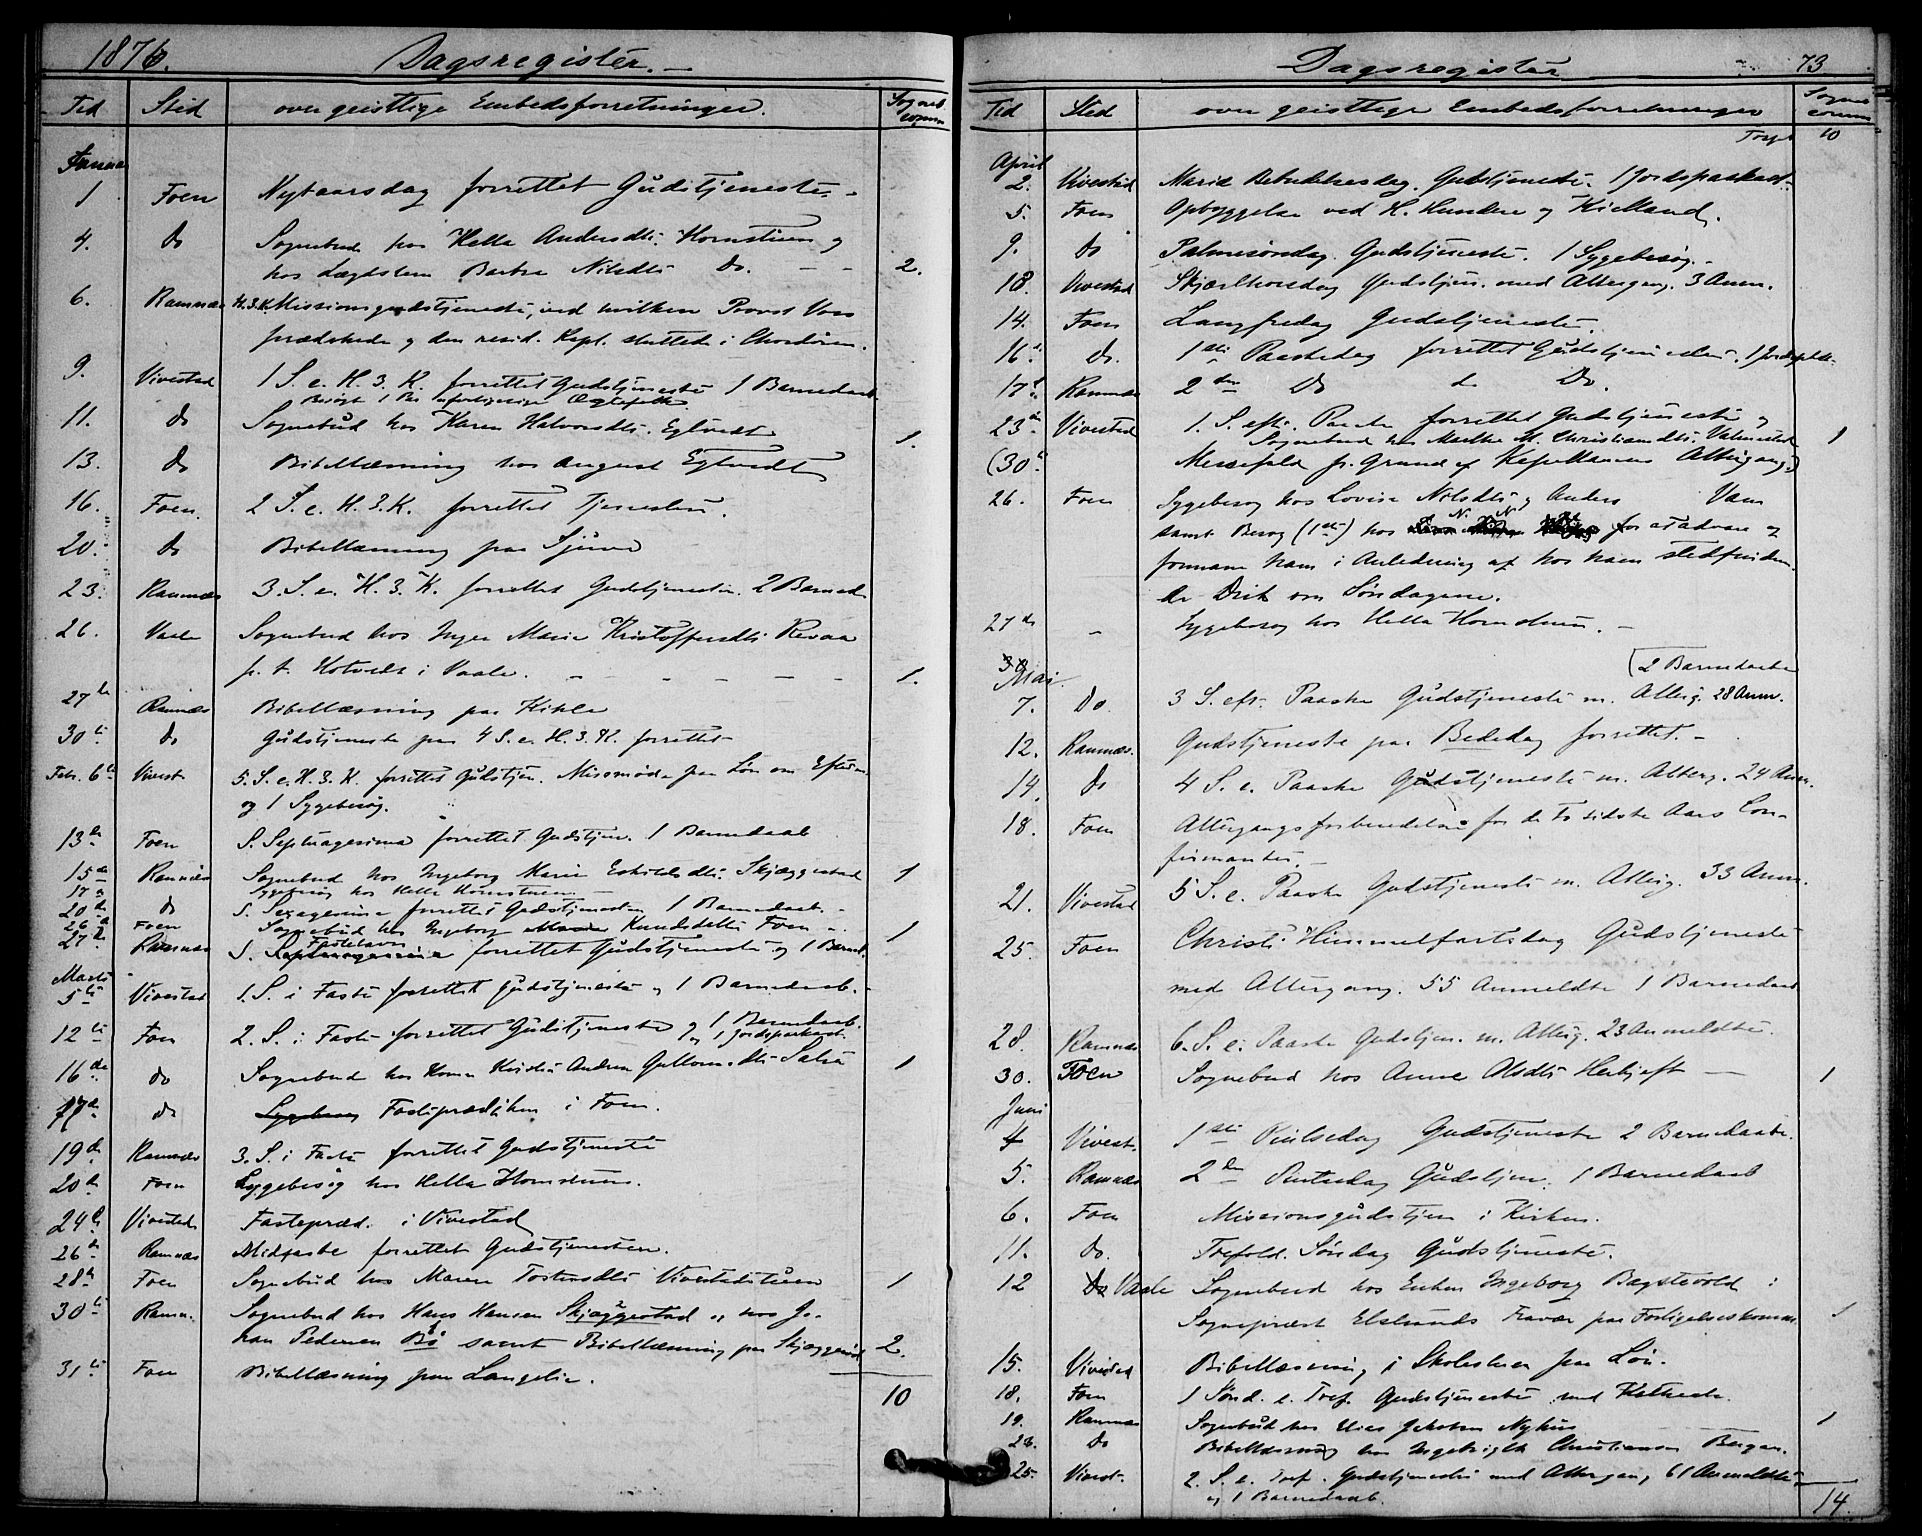 1876. Dagsregister.
Tid Sted over geistlige Embedsforretninger. Sogneb.
Januar
1 Foen Nytaarsdag forrettet Gudstjeneste.
4. do Sognebud hos Helle Andersdtr. Hornstuen og
hos Lægdslem Barbra Nilsdtr Do. - - 2.
6. Ramnæs H.3.K. Missionsgudstjeneste, ved hvilken Provst Voss
prædikede og den resid. Kapl. sluttede i Chordøren.
9. Vivestad 1 S. e. H. 3. K. forrettet Gudstjeneste 1 Barnedaab
11. do Sognebud hos Karen Halvorsdtr. Egtvedt 1.
13. do Bibellæsning hos August Egtvedt
16. Foen. 2 S. e. H. 3. K. forrettet Tjenesten.
20. do Bibellæsning paa
23. Ramnæs 3. S. e. H. 3. K. forrettet Gudstjeneste. 2 Barned.
26. Vaale Sognebud hos Inger Marie Kristoffersdtr. Revaa
p. t. Hotvedt i Vaale. - - - - - 1.
27de Ramnæs Bibellæsning paa Kihle
30te do Gudstjeneste paa 4 S. e. H. 3. K. forrettet
Febr. 6te Vivest 5. S. e. H. 3. K. forrettet Gudstjen. Missmøde paa Løn om Efterm.
og 1 Sygebesøg.
13de Foen S. Septuagesima forrettet Gudstjen. 1 Barnedaab
15de Ramnæs Sognebud hos Ingeborg Marie Eskildsdtr. Skjæggestad 1
17de Sygebesøg hos Helle Hornstuen.
20de do S. Sexagesima forrettet Gudstjenesten 1 Barnedaab.
26de Foen Sognebud hos Ingeborg Knudsdatter Foen 1
27de Ramnæs S. Fastelavn forrettet Gudstjeneste og 1 Barned.
Marts
5te Vivestad 1. S. i Faste forrettet Gudstjeneste og 1 Barnedaab.
12te Foen 2. S. i Faste forrettet Gudstjeneste og 1 Barnedaab.
og 1 Jordspaakast.
16de do Sognebud hos Andrea 1
17de do Sygebesøg Fasteprædiken i Foen.
19de Ramnæs 3. S. i Faste forrettet Gudstjeneste
20de Foen Sygebesøg hos Helle Hornstuen.
24de Vivestad Fastepræd. i Vivestad
26de Ramnæs Midfaste forrettet Gudstjenesten.
28de Foen Sognebud hos Maren Torstensdtr Vivestadstuen 1
30te Ramn. Sognebud hos Hans Hansen Skjæggestad og hos Jo-
han Pedersen Bø samt Bibellæsning paa Skjæggerød 2.
31te Foen Bibellæsning paa Langelie.
10
Dagsregister 73
Tid Sted over geistlige Embedsforretninger Sogne
Tarsp 10
April
2. Vivestad Mariæ Bebudelsesdag. Gudstjeneste. 1 Jordspaakast.
5. Foen Opbyggelse ved H. Hundere og Kielland.
9. do Palmesøndag. Gudstjeneste. 1 Sygebesøg.
13. Vivestad Skjærthorsdag Gudstjen. med Altergang. 3 Anm.
14. Foen Langfredag Gudstjeneste.
16de do. 1ste Paaskedag forrettet Gudstjenesten. 1 Jordspk.
17de Ramnæs 2den Do do Do.
23de Vivestad 1. S. eft. Paaske forrettet Gudstjeneste og
Sognebud hos Marthe M. Christiansdtr. 1
(30te Messefald pr. Grund af Kapellanens Altergang.)
26. Foen Sygebesøg hos Lovise Nilsdtr og Anders
samt Besøg (1ste) hos N. N. for at advare og
formane ham i Anledning af hos ham stedfinden-
de Drik om Søndagene.
27de - Sygebesøg hos Helle Hornstuen. -
Mai. (2 Barnedaabe
7. Do. 3 S. eft. Paaske Gudstjeneste m. Alterg. 28 Anm.
12. Ramnæs. Gudstjeneste paa Bededag forrettet. -
14. Do 4 S. e. Paaske Gudstjeneste m. Alterg. 24 Anm.
18. Foen Altergangsforberedelse for de to sidste Aars Con-
firmanter. -
21. Vivestad 5 S. e. Paaske Gudstjeneste m. Alterg. 33 Anm.
25. Foen Christi Himmelfartsdag Gudstjeneste
med Altergang. 55 Anmeldte 1 Barnedaab
28. Ramnæs 6. S. e. Paaske Gudstjen. m. Alterg. 23 Anmeldte.
30. Foen Sognebud hos Anne Olsdtr. 1
Juni
4 Vivest. 1ste Pintsedag Gudstjeneste 2 Barnedaabe.
5. Ramnæs 2den Pintsedag Gudstjen. 1 Barnedaab
6. Foen Missionsgudstjen i Kirken.
11. do. Trefold. Søndag Gudstjeneste.
12 Do Vaale Sognebud hos Enken Ingeborg i
Sogneprest Fravær paa Forligelseskomm. 1
15. Vivestad Bibellæsning i paa Løn.
18. Foen 1 Sønd. e. Tref. Gudstjeneste med
19. Ramnæs Sognebud hos Nyhus 1
Do Bibellæsning hos Christiansen Bergan.
25. Vivest. 2. S. e. Tref. Gudstjeneste med Altergang 61 Anmeldte
og 1 Barnedaab. 14.